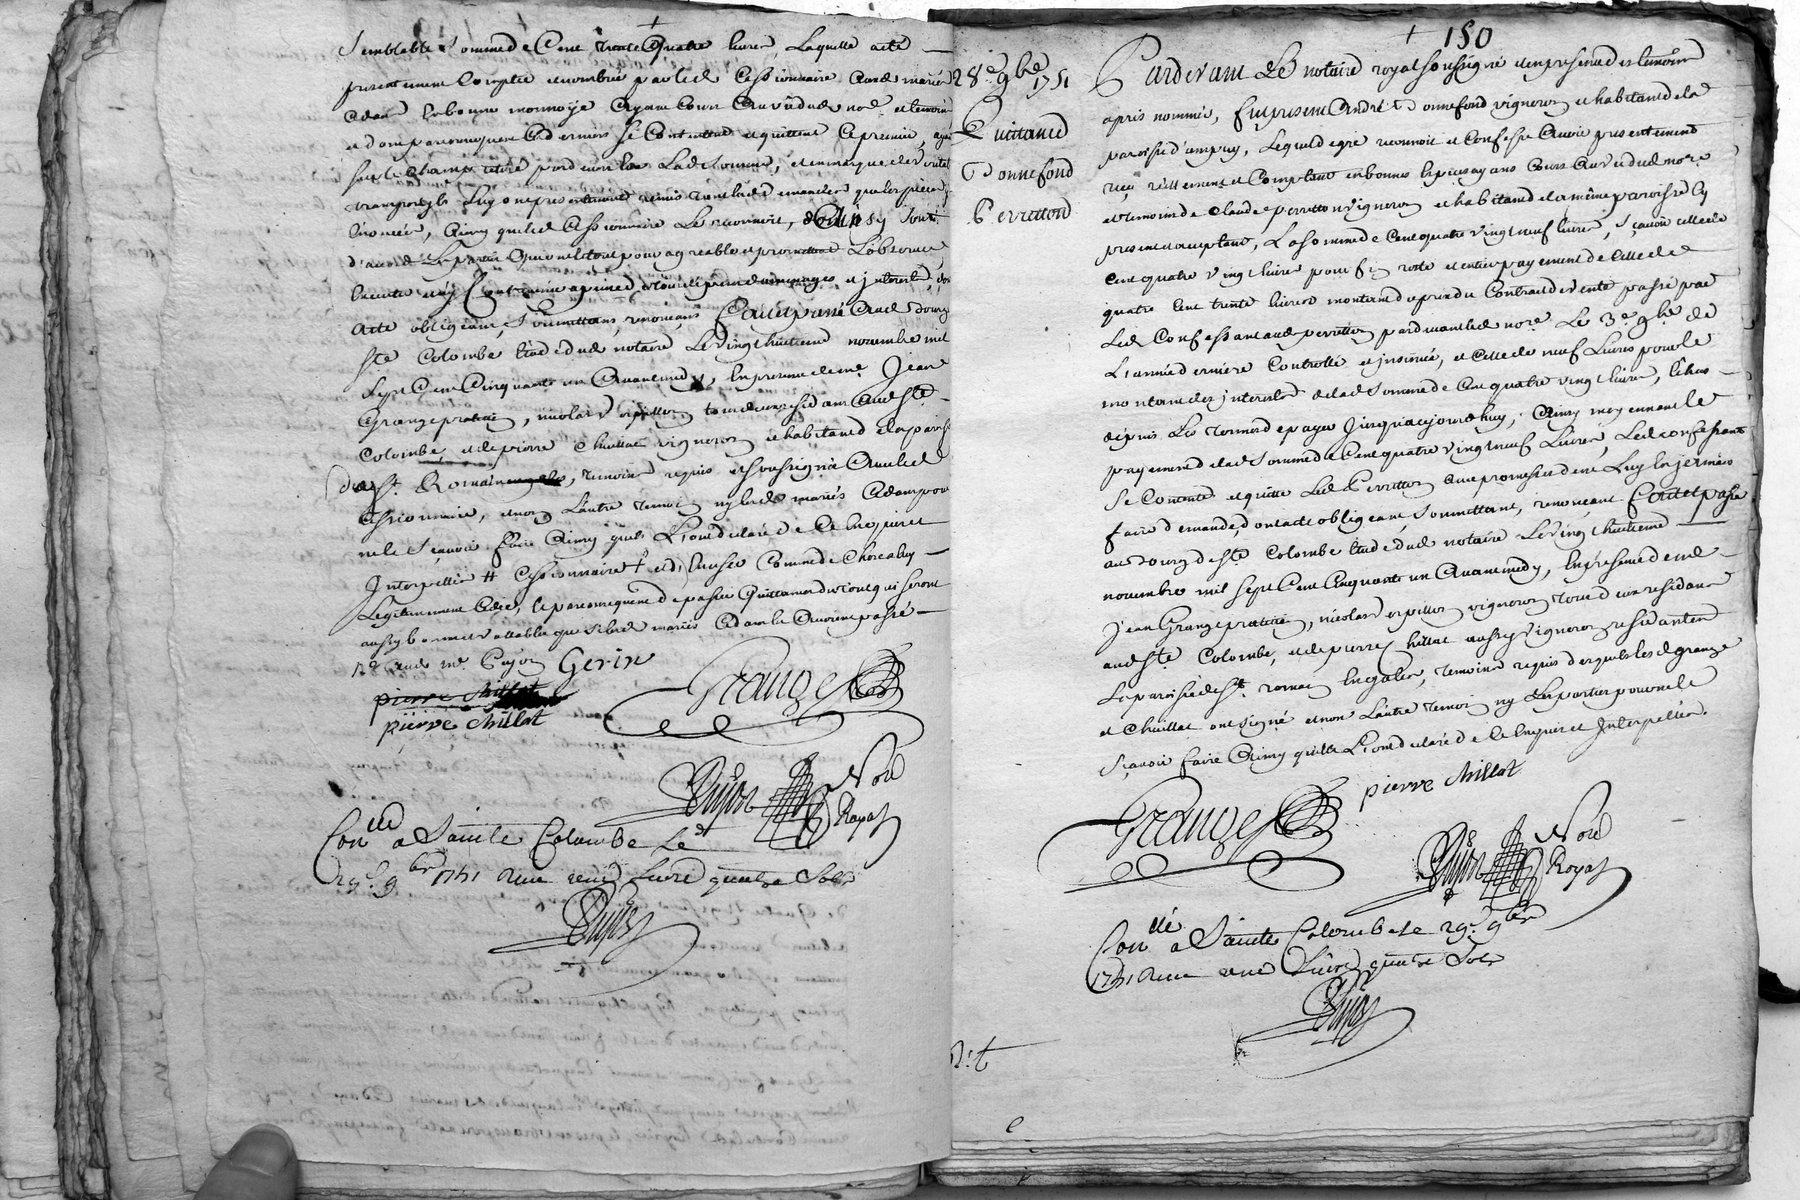 semblable somme de Cent trente Quatre livres Laquelle a été
presentement Comptée et nombrée par led. Cessionnaire auxd. mariés
adam en bonne monnoye ayant Cours au vû dud. no.re et temoins
et dont par consequent Ces derniers se Contentent et quittent le premier, ayant
sur le champ retiré pardevers eux Lad. somme,
transporté luy ont presentement remis
Enoncée, Ainsy que led. Cessionnaire Le reconnoit, dont & Ainsy sont
d'accord Les parties qui ont le tout pour agreable et promettent L'observer
à peine de tous depens dommages et interets, dont
Acte obligeant, soumettans, renonçans, Fait et passé Aud. bourg
Ste Colombe Etude dud. notaire Le vingt huitieme novembre mil
sept Cent Cinquante un Avant midy, En presence de me. Jean
Grange praticien, nicolas vignerons tous deux residans Aud. Ste
Colombe, et de pierre Chillat vigneron et habitant de la paroisse
de St. Romain, temoins requis et soussignés Avec led.
Cessionnaire, et non L'autre temoin ny lesd. mariés Adam pour
ne le sçavoir faire Ainsy qu'ils L'ont declaré de Ce Enquis et
Interpellés # Cessionnaire
Legitimement Cedée,
aussy bonnes et vallables que si lesd. mariés Adam les Avoient passé
Gerin
Granges
pierre chillat
pierre chillat
Pujos No.re Royal
Con.llé a Sainte Colombe Le
29e. 9bre 1751 Reçu une Livre quatre Sols
Pujos
+ 150
28e. 9bre 1751
Quittance
Bonnefond
Perretton
Pardevant Le notaire royal soussigné et en presence des temoins
apres nommés, fut present André Bonnefond vigneron et habitant de la
paroisse d'ampuy, Lequel de gré reconnoit et Confesse Avoir presentement
reçu réellement et Comptant en bonnes Especes ayans Cours Au vû dud. no.re
et temoins de Claude perretton vigneron et habitant de la même paroisse Cy
present et acceptant, La somme de Cent quatre vingt neuf livres, Sçavoir Celle de
Cent quatre vingt livres pour fin reste et entier payement de Celle de
quatre Cent trente livres montant du prix du Contract de vente passé par
Led. Confessant aud. perretton pardevant led. no.re Le 3e. 9bre de
L'année derniere Controllé et insinué, et Celle de neuf Livres pour le
montant des interets de lad. somme de Cent quatre vingt livres, Echus
depuis Les termes de payer Jusqu'à Ce jourd'huy, Ainsy moyennant le
payement de lad. somme de Cent quatre vingt neuf Livres, Led. Confessant
se Contente, et quitte Led. Perretton avec promesse de ne Luy En jamais
faire demande, dont acte obligeant, soumettant, renonçant, Fait et passé
au bourg de Ste Colombe Etude dud. notaire Le vingt huitieme
novembre mil sept Cent Cinquante un Avant midy, En présence de me.
Jean Grange praticien, nicolas vigneron tous deux residans
aud. Ste Colombe, et de pierre Chillat aussy vigneron residant en
La paroisse de St. romain En galer, temoins requis desquels les d. grange
et Chillat ont signé et non L'autre temoin ny Les parties pour ne le
sçavoir faire Ainsy qu'ils L'ont declaré de Ce Enquis et Interpellés.
pierre chillat
Granges
Pujos No.re Royal
Con.llé a Sainte Colombe Le 29e. 9bre
1751 Reçu une Livre quatre Sols
Pujos